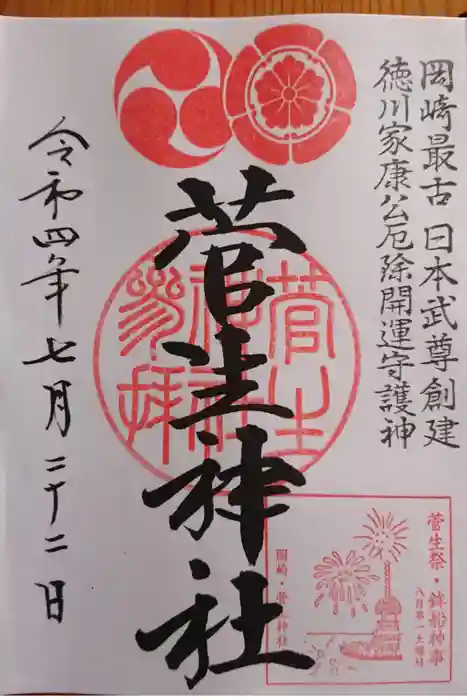 岡崎最古 日本武尊創建
徳川家康公厄除開運守護神
菅生神社
令和四年七月二十二日
菅生神社参拝
菅生祭・鉾船神事
八月第一土曜日
岡崎・菅生神社